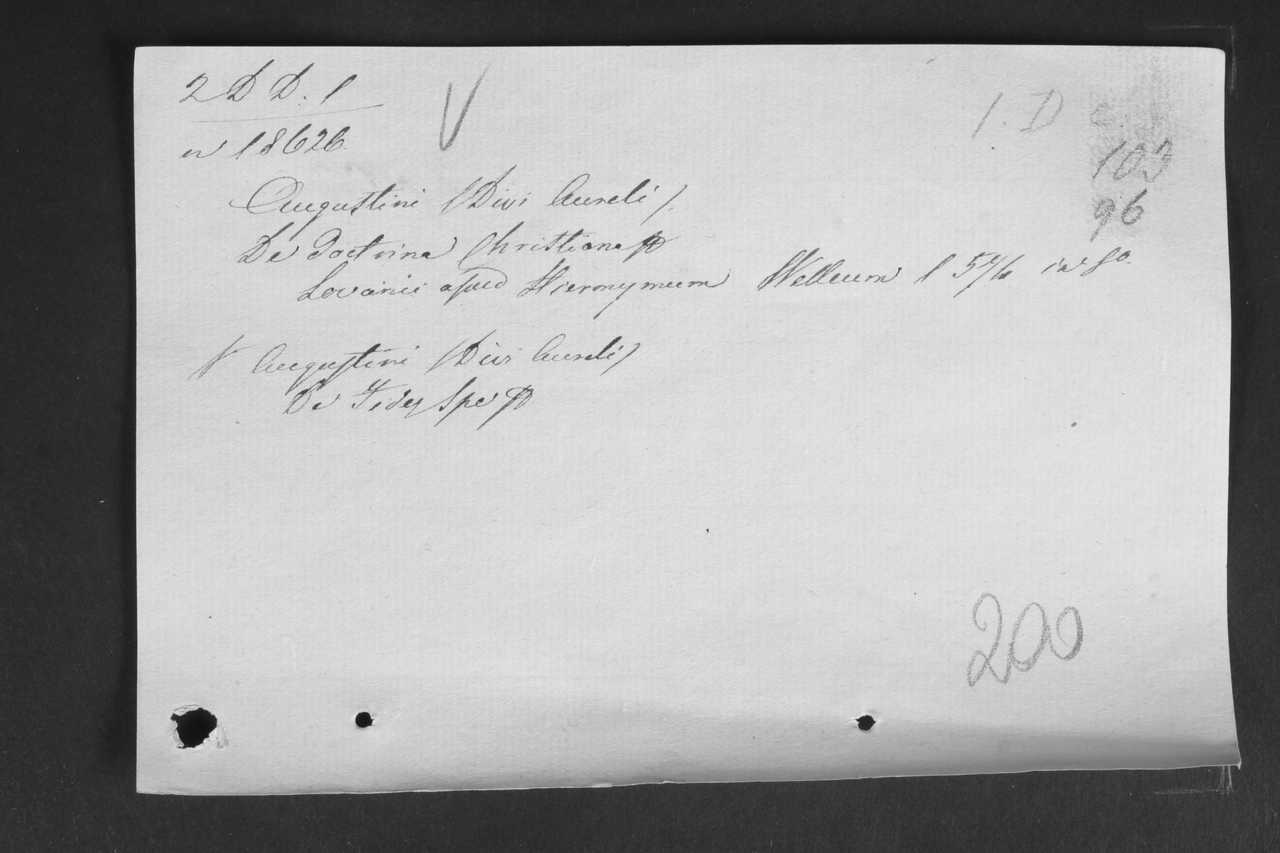 2 D D. 1
V
1. D
n 18626
103
96
Augustini (Divi Aureli)
De Doctrina Christiana
Lovanii apud Hieronymum Welleum in 8o
Augustini (Divi Aureli)
De Fide, Spe
200